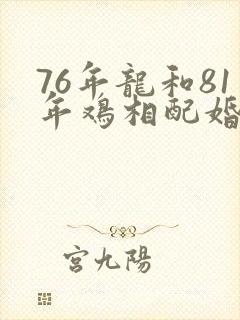 76年龍和81
年鸡相配婚
宫九陽